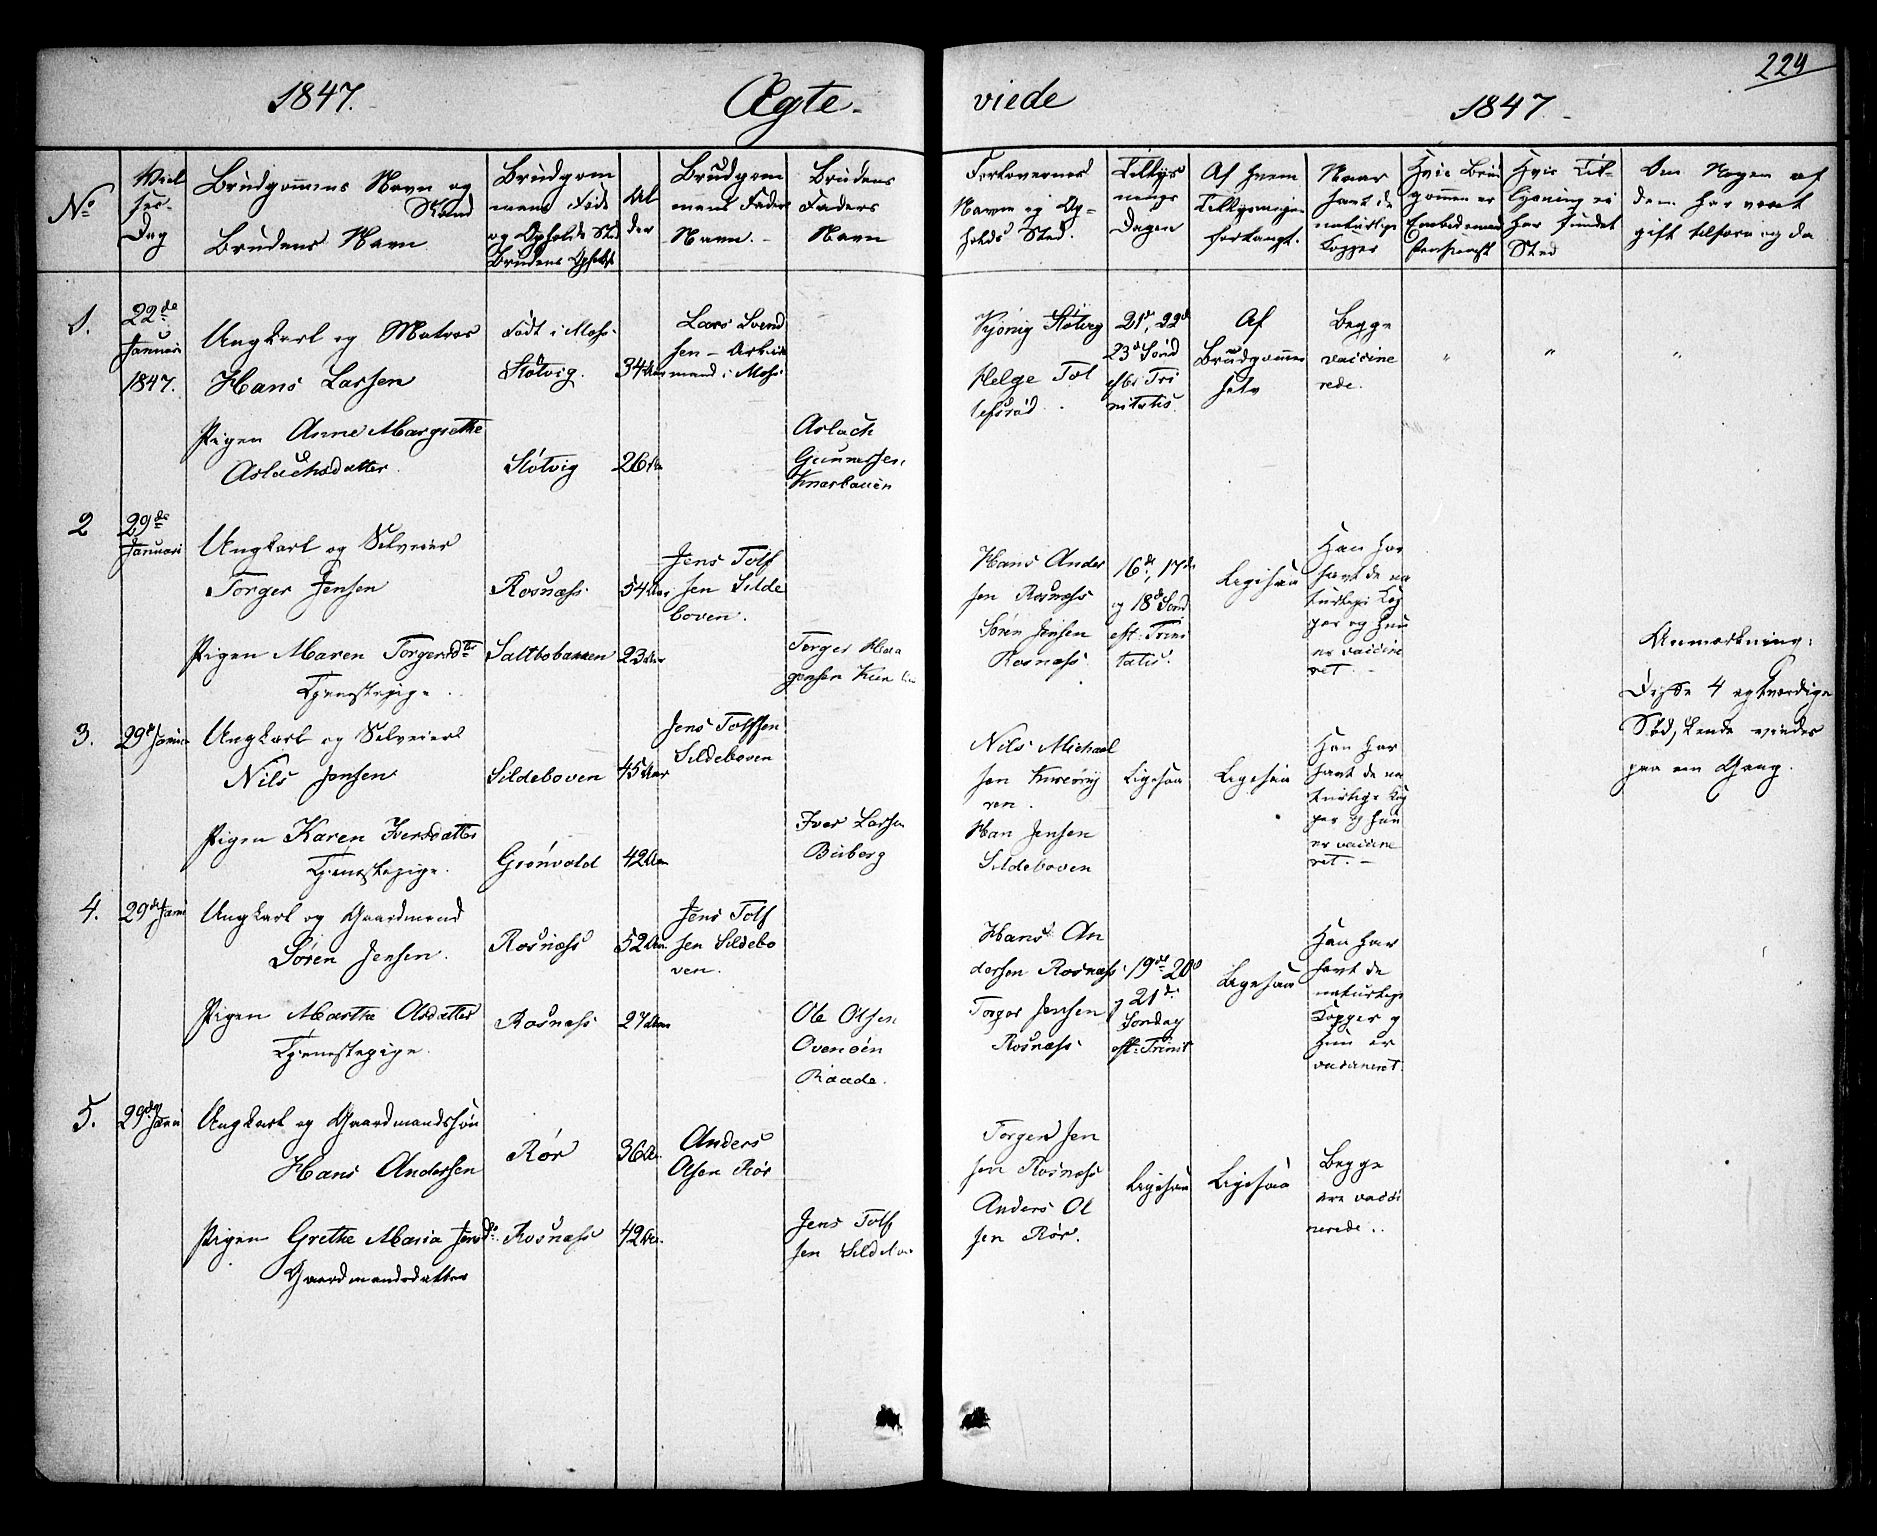 224
1847.
Ægte-
viede
1847.
No
Viel
ses-
Dag
Brudgommens Navn og
Stand
Brudens Navn
Brudgom
mens Føde
og Opholds Sted
Brudens Opholdst
Al
der
Brudgom
mens Faders
Navn.
Brudens
Faders
Navn
Forlovernes
Navn og Op-
holds Sted.
Tillys
nings
Dagen
Af hvem
Tillysningen
forlangt.
Naar
havt de
naturlige
Kopper
Hvis Brud
gommen er
Embedsmand
Hvis Til-
lysning ei
har fundet
Sted
Om Nogen af
dem har vært
gift tilforn og da
1.
22de
Januari
1847.
Ungkarl og Matros
Hans Larsen
Født i Moss.
Støtvig.
34 Aar
Lars Svend
sen - Arbeids
mand i Moss
Støtvig
Helge Tol
lefsrød.
21de, 22de
23de Sønd
efter Tri
nitatis.
Af
Brudgommen
selv
Begge
vaccine
rede.
"
"
"
Pigen Anne Margrethe
Aslachsdatter.
Støtvig
26 Aar
Aslach
Gunnersen
2
29de
Januari
Ungkarl og Selveier
Torger Jensen
Rosnæss.
54 Aar
Jens Tolf
sen Silde
boven.
Hans Ander
sen Rosnæss
Søren Jensen
Rosnæss.
16de, 17de
og 18de Sønd
eft. Trini
tatis.
Ligesaa
Han har
havt de na
turlige Kop
per og hun
er vaccine
ret.
Pigen Maren Torgersdtr
Tjenestepige.
Saltbobakken
23 Aar
Torger
Anmærkning:
Disse 4 egtværdige
Sødskende viedes
paa een Gang.
3.
29de Janua
Ungkarl og Selveier
Nils Jensen
Sildeboven
45 Aar
Jens Tolfsen
Sildeboven
Nils Michael
sen
Han Jensen
Sildeboven
Ligesaa
Ligesaa
Han har
havt de na
turlige Kop
per og hun
er vaccine
ret.
Pigen Karen Iversdatter
Tjenestepige.
Grønvold
42 Aar
Iver Larsen
Biiberg
4.
29de Janu
Ungkarl og Gaardmand
Søren Jensen.
Rosnæss
52 Aar
Jens Tolf
sen Sildebo
ven.
Hans An
dersen Rosnæss.
Torger Jensen
Rosnæss.
19de 20de
og 21de
Sondag
eft: Trinit
Ligesaa
Han har
havt de
naturlige
Kopper og
hun er
vaccineret.
Pigen Marthe Olsdatter
Tjenestepige.
Rosnæss
27 Aar
Ole Olsen
Ovenøen
Raade.
5.
29de Janu
Ungkarl og Gaardmandssøn
Hans Andersen
Rør
36 Aar
Anders
Olsen Rør
Torger Jen
sen Rosnæss
Anders Ol
sen Rør.
Ligesaa
Ligesaa
Begge
ere vacci
nerede.
Pigen Grethe Maria Jensd.
Gaardmandsdatter
Rosnæss
42 Aar.
Jens Tolf
sen Sildebov